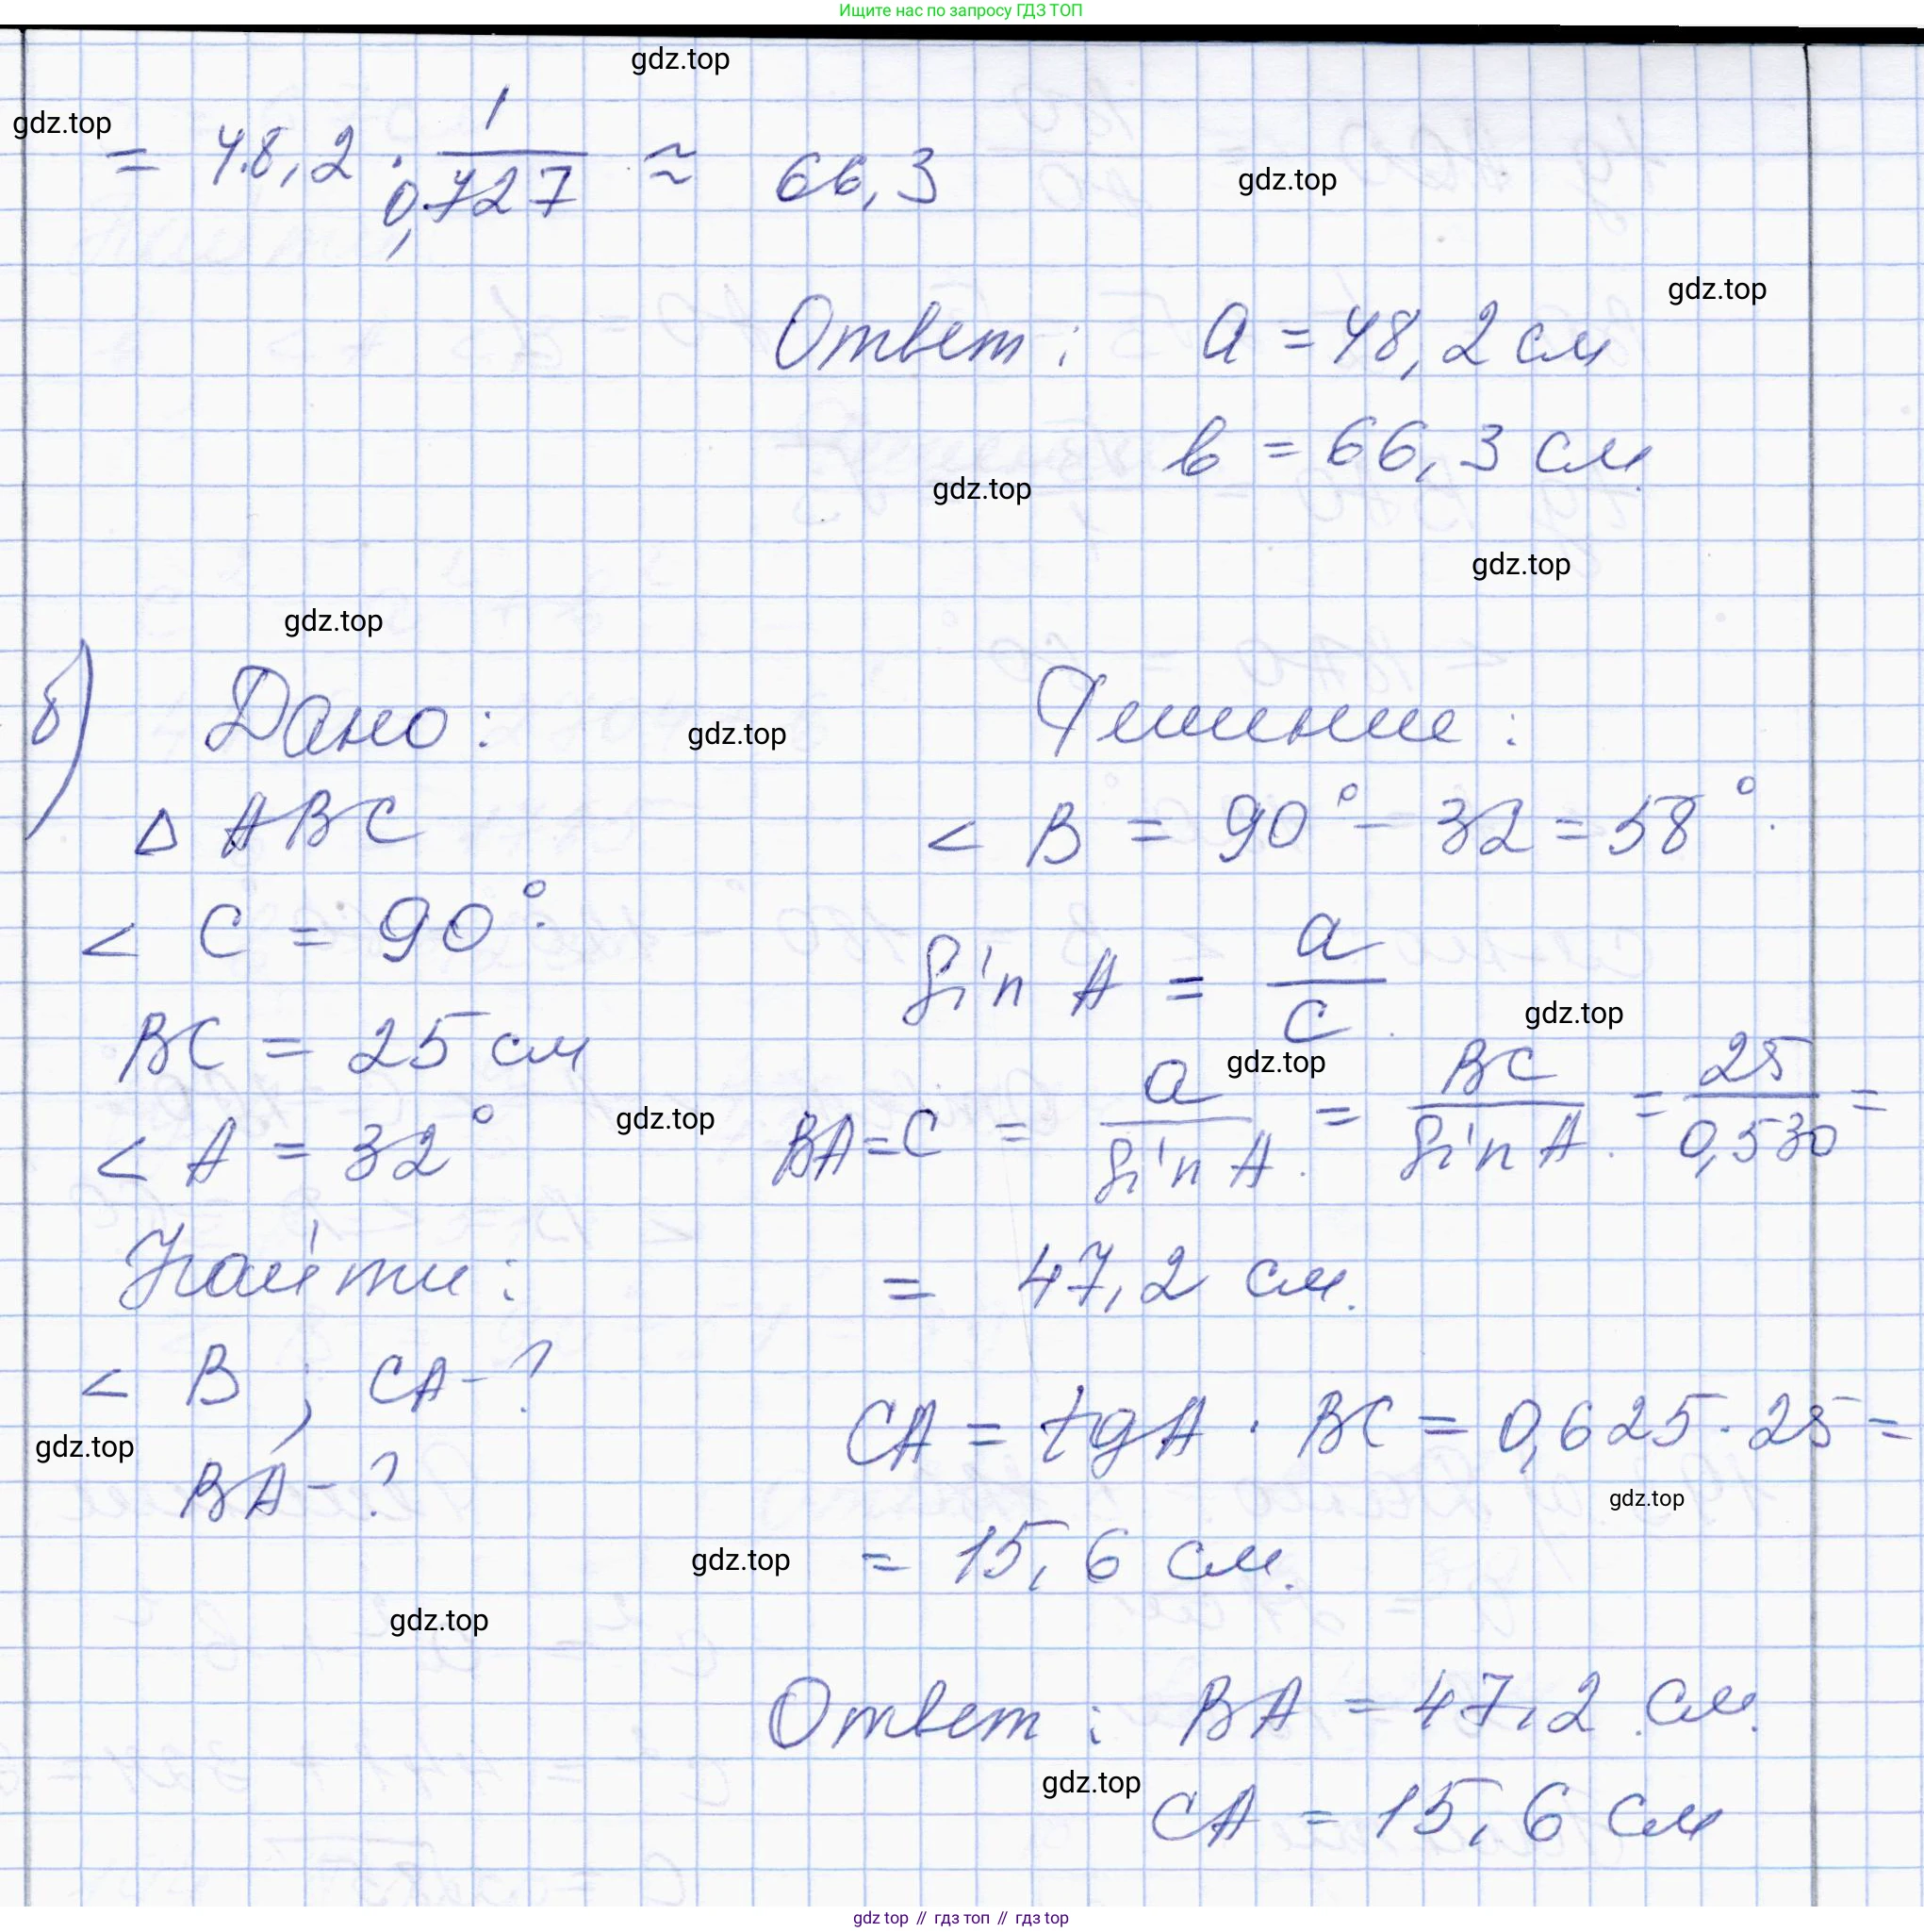 Ищите нас по запросу ГДЗ ТОП
gdz.top
gdz.top
= 48,2 · 1/0,727 ≈ 66,3
gdz.top
gdz.top
Ответ: a = 48,2 см
в = 66,3 см
gdz.top
gdz.top
gdz.top
б) Дано:
gdz.top
Решение:
△ ABC
< B = 90° - 32 = 58°.
< C = 90°.
Sin A = a/c.
gdz.top
BC = 25 см
gdz.top
gdz.top
< A = 32°
BA = C = a/Sin A. = BC/Sin A. = 25/0,530 =
Найти:
= 47,2 см.
< B ; CA - ?
CA = tgA · BC = 0,625 · 25 =
gdz.top
BA - ?
gdz.top
gdz.top
= 15,6 см.
gdz.top
Ответ: BA = 47,2 см.
gdz.top
CA = 15,6 см
gdz top // гдз топ // гдз top